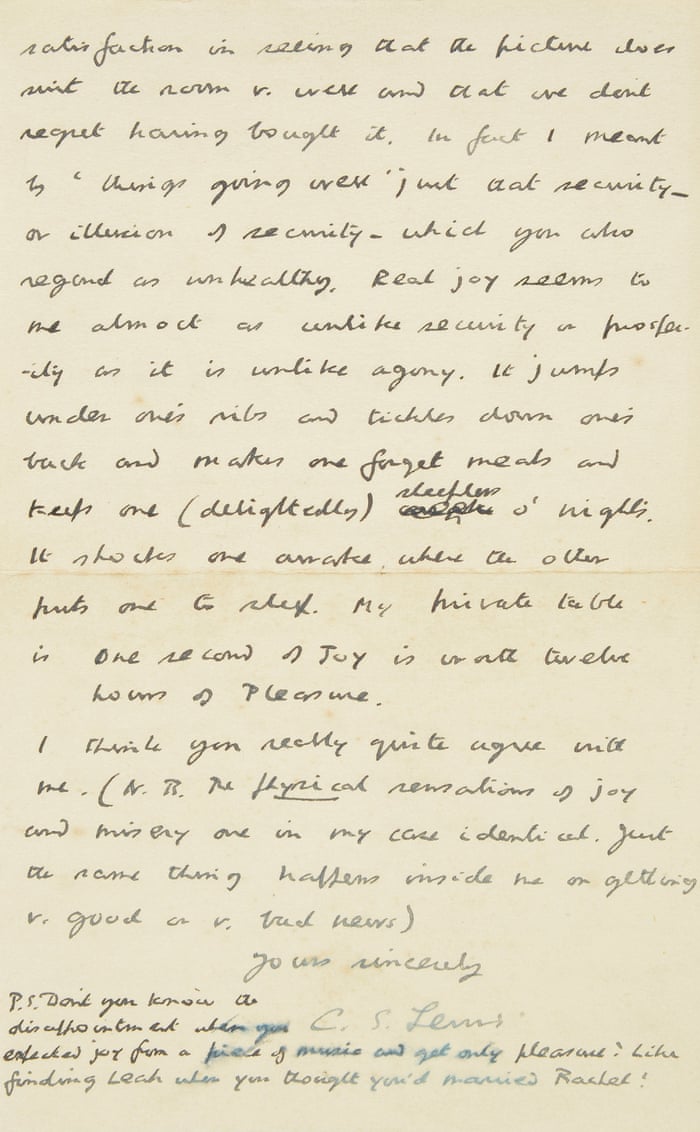 satisfaction in seeing that the picture does
suit the room v. well and that we don't
regret having bought it. In fact I meant
by 'things going well' just that security–
or illusion of security– which you also
regard as unhealthy. Real joy seems to
me almost as unlike security or prosper-
-ity as it is unlike agony. It jumps
under one's ribs and tickles down one's
back and makes one forget meals and
keeps one (delightedly) sleepless o' nights.
It shocks one awake, where the other
puts one to sleep. My private table
is One second of Joy is worth twelve
hours of Pleasure.
I think you really quite agree with
me. (N.B. The physical sensations of joy
and misery are in my case identical. Just
the same thing happens inside me on getting
v. good or v. bad news)
Yours sincerely
C. S. Lewis
P.S. Don't you know the
disappointment when you
expected joy from a piece of music and get only pleasure? Like
finding Leah when you thought you'd married Rachel!